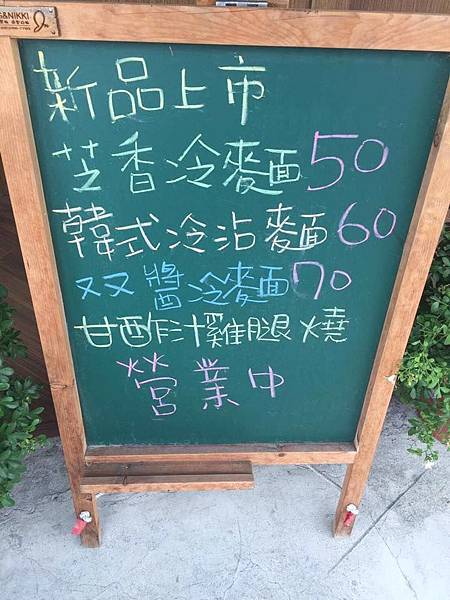 &NIKKI
新品上市
芝香冷麥面50
韓式冷沾麵60
双醬冷麥面70
甘酢汁雞腿燒
營業中